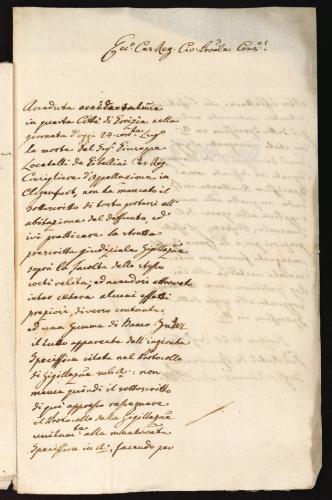 Ecc. Ces. Reg. Civ. Prov.le Cons.e!
Accaduta
in questa Città di Gorizia nella
giornata d'oggi 24 cor.te Lug.o
la morte del Sig.r Giuseppe
Locatelli de Eibellini Ces. Reg.
Consigliere d'Appellazione in
Clagenfurt, non ha mancato il
sottoscritto di tosto portarsi all'
abitazione del deffunto, ed
ivi pratticare la stretta
prescritta giudiziale Sigillaz.ne
sopra la facoltà dello stesso
ed essendosi ritrovato
inter cætera alcuni effetti
preziosi, diverso contante,
ed una somma di Banco
il tutto apparente dell'ingionta
Speciffica citata nel Protocollo
di Sigillaz.ne sub A: non
manca quindi il sottoscritto
di qui appresso rassegnare
il Protocollo della Sigillaz.ne
unitam.te alla mentovata
Speciffica in A, facendo, per